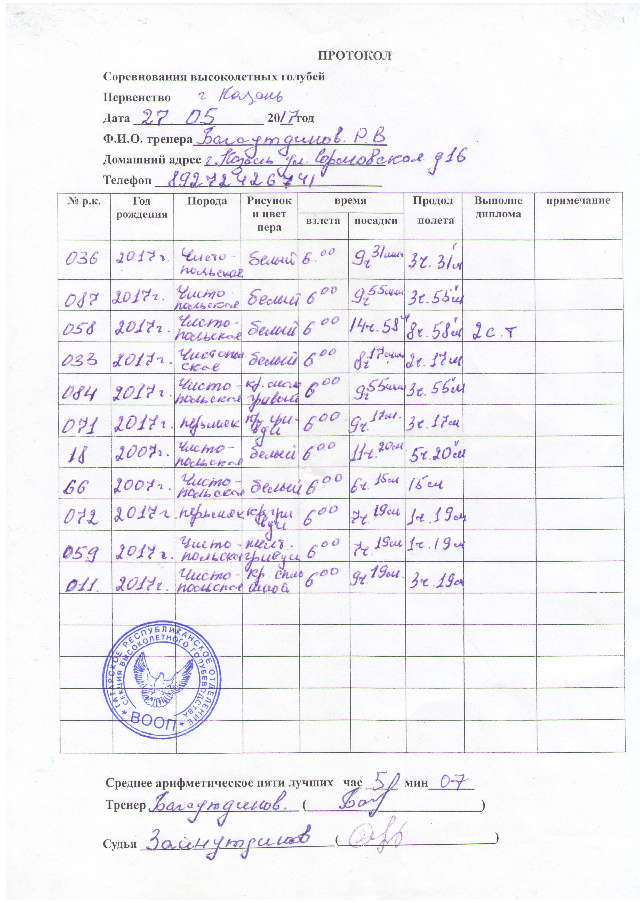 ПРОТОКОЛ
Соревнования высоколетных голубей
Первенство г Казань
Дата 27 05 2017год
Ф.И.О. тренера Багаутдинов. Р В
Домашний адрес г. Казань ул. Сормовская д16
Телефон 89272426741
№ р.к. Год рождения Порода Рисунок и цвет пера время взлета посадки Продол полета Выполне диплома примечание
036 2017г. Чисто-польское белый 6.00 9ч 31мин 3ч. 31м
087 2017г. Чисто польское белый 6 00 9ч 55мин 3ч. 55м
058 2017г. Чисто-польское белый 6 00 14ч. 58м 8ч. 58м 2 с. т
033 2017г. Чистополь ское белый 6 00 8ч 17мин 2ч. 17м
084 2017г. Чисто-польское гривый 6 00 9ч 55мин 3ч. 55м
071 2017г. 6 00 9ч. 17м. 3ч. 17м
18 2007г. Чисто-польское белый 6 00 11ч. 20м 5ч. 20м
66 2007г. Чисто-польское белый 6 00 6ч. 15м 15м
072 2017г. 6 00 7ч 19м 1ч. 19м
059 2017г. Чисто-польская 6 00 7ч 19м 1ч. 19м
011 2017г. Чисто-польское кр спло шной 6 00 9ч 19м. 3ч 19м
ТАТАРСКОЕ РЕСПУБЛИКАНСКОЕ ОТДЕЛЕНИЕ
СЕКЦИЯ ВЫСОКОЛЕТНОГО ГОЛУБЕВОДСТВА
ВООП
Среднее арифметическое пяти лучших час 5 мин 07
Тренер Багаутдинов. ( )
Судья Зайнутдинов ( )